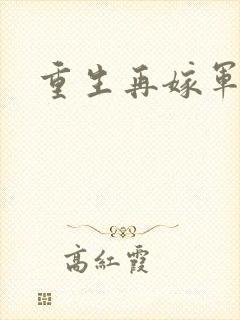 重生再嫁軍
高紅霞